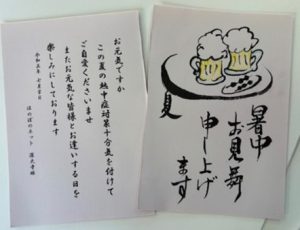 お元気ですか
この夏の熱中症対策十分気を付けて
ご自愛くださいませ
またお元気な皆様とお逢いする日を
楽しみにしております
令和五年 七月吉日
ほのぼのネット
夏
暑中
お見舞
申し上げ
ます